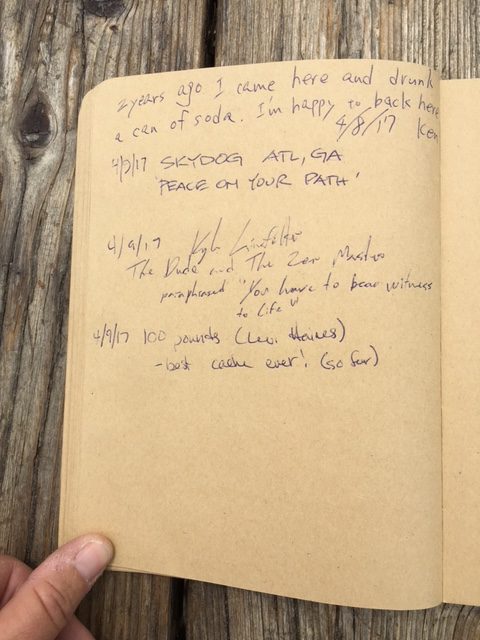 2 years ago I came here and drunk
a can of soda. I'm happy to back here
4/8/17 Ken
SKYDOG ATL, GA
'PEACE ON YOUR PATH'
4/9/17 Kyle
The Dude and The Zen Master
paraphrased "You have to bear witness
to Life"
4/9/17 100 pounds (Levi Haines)
- best cache ever! (so far)